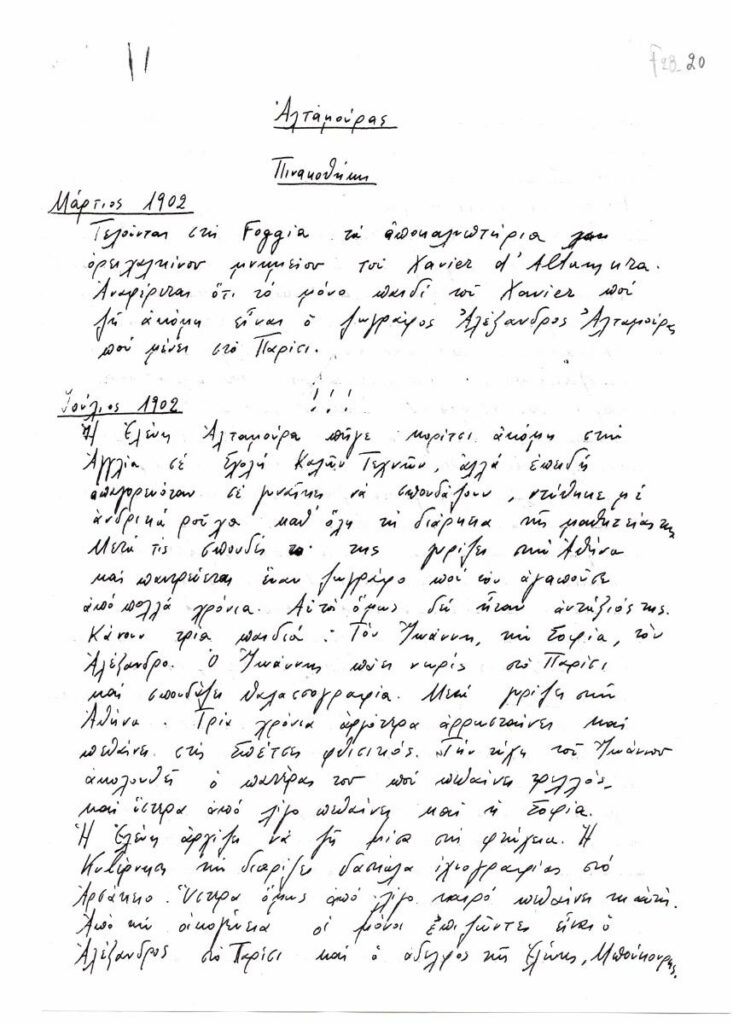 F28-20
Ἀλταμούρας
Πινακοθήκη
Μάρτιος 1902
Τελοῦνται στὴ Foggia τὰ ἀποκαλυπτήρια
ὀρειχαλκίνου μνημείου τοῦ Xavier d'Altamura.
Ἀναφέρεται ὅτι τὸ μόνο παιδὶ τοῦ Xavier ποὺ
ζῆ ἀκόμη εἶναι ὁ ζωγράφος Ἀλέξανδρος Ἀλταμούρας
ποὺ μένει στὸ Παρίσι.
Ἰούλιος 1902
!!!
Ἡ Ἑλένη Ἀλταμούρα πῆγε κορίτσι ἀκόμη στὴν
Ἀγγλία σὲ Σχολὴ Καλῶν Τεχνῶν, ἀλλὰ ἐπειδὴ
ἀπαγορευόταν σὲ γυναῖκες νὰ σπουδάζουν, ντύθηκε μὲ
ἀνδρικὰ ροῦχα καθ' ὅλη τὴ διάρκεια τῆς μαθητείας της.
Μετὰ τὶς σπουδές της γυρίζει στὴν Ἀθήνα
καὶ παντρεύεται ἕναν ζωγράφο ποὺ τὸν ἀγαποῦσε
ἀπὸ πολλὰ χρόνια. Αὐτὸς ὅμως δὲ ἦταν ἀντάξιός της.
Κάνουν τρία παιδιά: Τὸν Ἰωάννη, τὴν Σοφία, τὸν
Ἀλέξανδρο. Ὁ Ἰωάννης πάει νωρὶς στὸ Παρίσι
καὶ σπουδάζει θαλασσογραφία. Μετὰ γυρίζει στὴν
Ἀθήνα. Τρία χρόνια ἀργότερα ἀρρωσταίνει καὶ
πεθαίνει στὶς Σπέτσες φθισικός. Τὴν τύχη τοῦ Ἰωάννου
ἀκολουθεῖ ὁ πατέρας του ποὺ πεθαίνει τρελλός,
καὶ ὕστερα ἀπὸ λίγο πεθαίνει καὶ ἡ Σοφία.
Ἡ Ἑλένη ἀρχίζει νὰ ζῆ μέσα στὴ φτώχεια. Ἡ
Κυβέρνηση τὴν διορίζει δασκάλα ἰχνογραφίας στὸ
Ἀρσάκειο. Ὕστερα ὅμως ἀπὸ λίγο καιρὸ πεθαίνει κι αὐτή.
Ἀπὸ τὴν οἰκογένεια οἱ μόνοι ἐπιζῶντες εἶναι ὁ
Ἀλέξανδρος στὸ Παρίσι καὶ ὁ ἀδελφὸς τῆς Ἑλένης, Μπούκουρης.